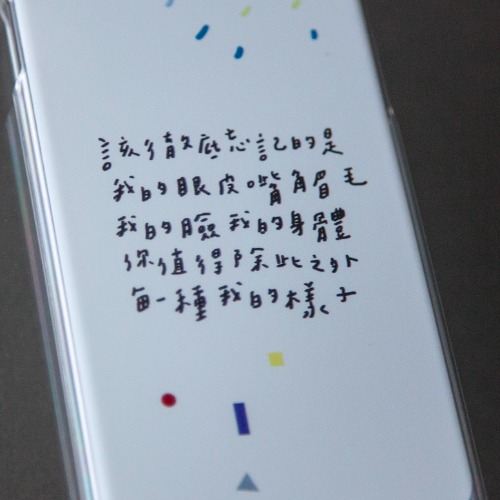 該徹底忘記的是
我的眼皮嘴角眉毛
我的臉我的身體
你值得除此之外
每一種我的樣子